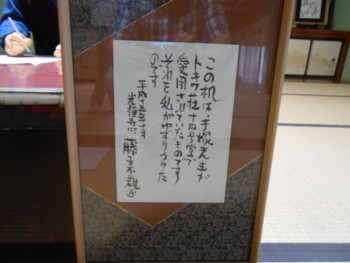 この机は、手塚先生が
トキワ荘十四号室で
愛用されていたものです
それを私がゆずりうけた
のです
平成十五年十月
光禅寺にて 藤子不二雄Ⓐ